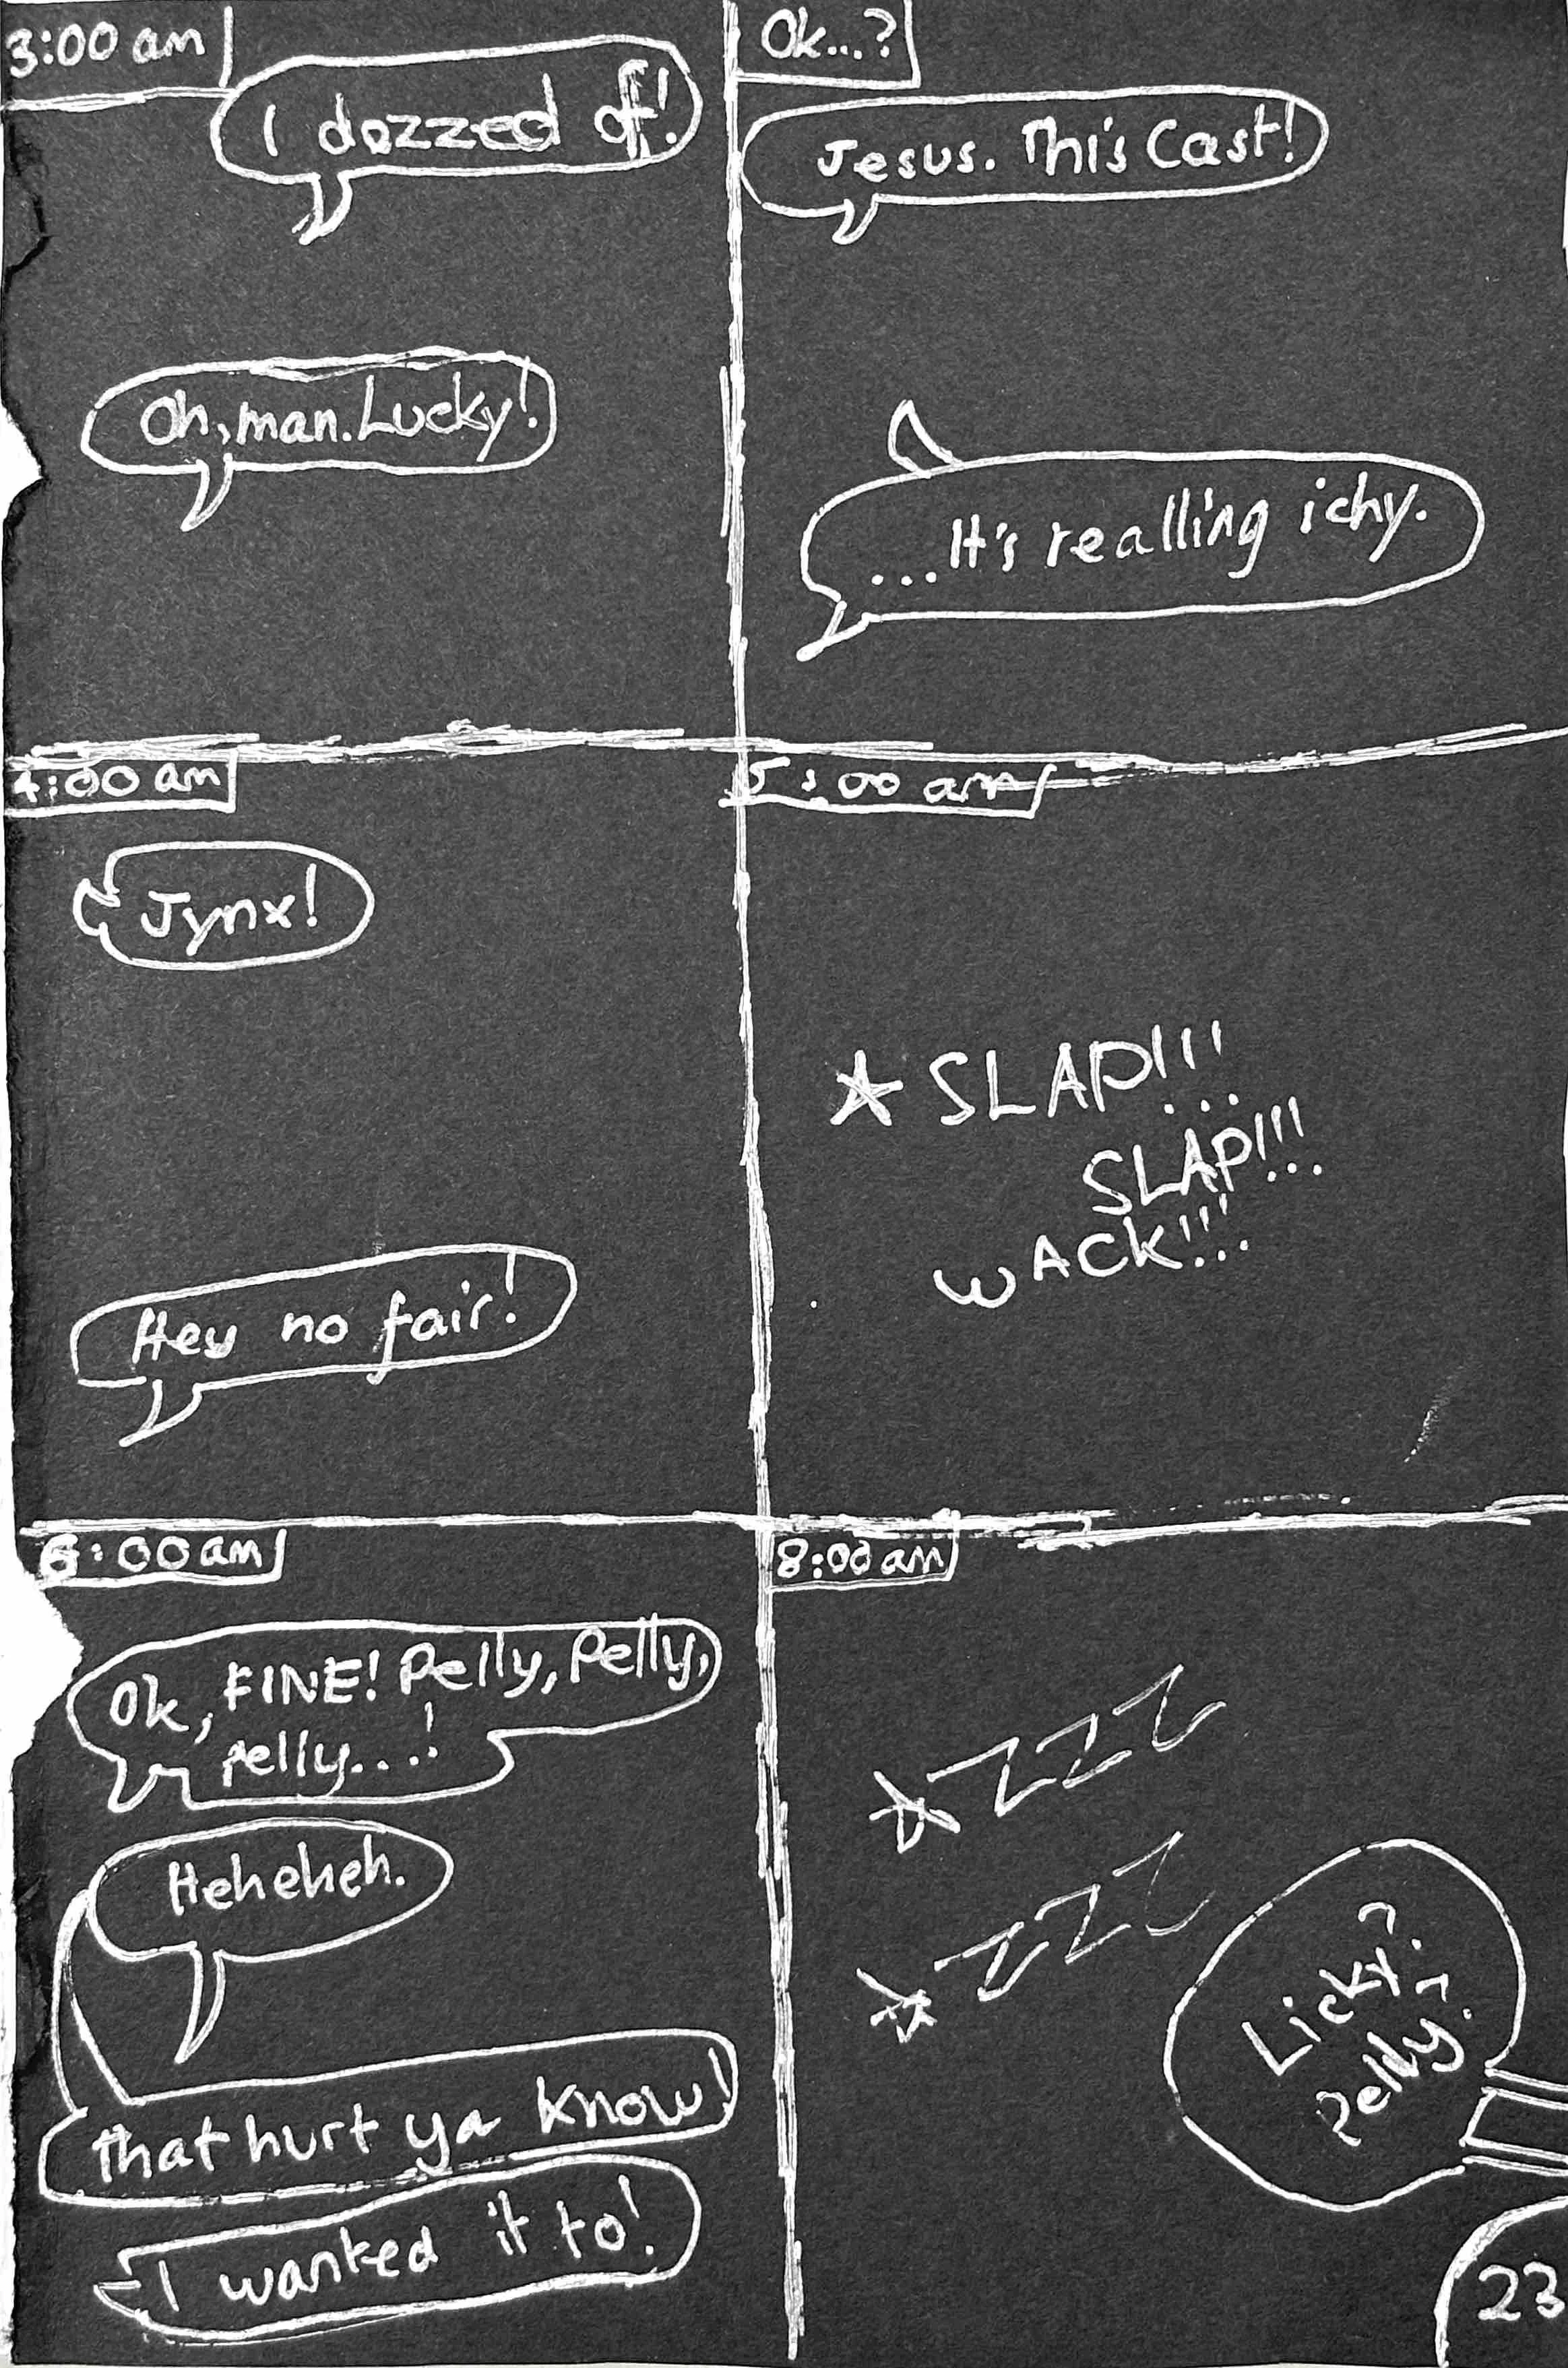 3:00 am
I dozzed off!
Oh, man. Lucky!
Ok...?
Jesus. This Cast!
...It's realling ichy.
4:00 am
Jynx!
Hey no fair!
5:00 am
SLAP!!!
SLAP!!!
WACK!!!
6:00 am
Ok, FINE! Pelly, Pelly,
Pelly...!
Heheheh.
That hurt ya know!
I wanted it to!
8:00 am
ZZZZ
ZZZZ
Licky?
Pelly?
23